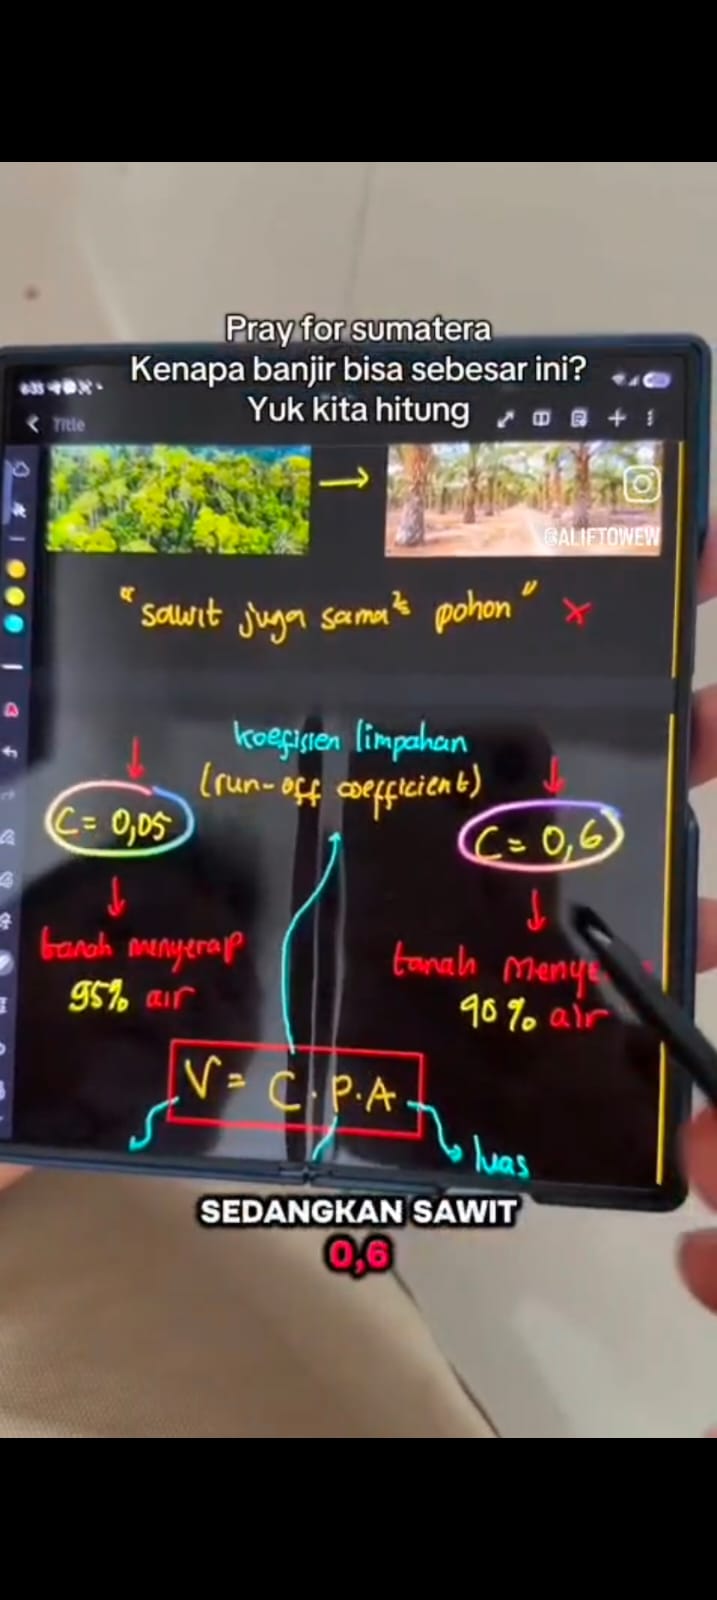 Pray for sumatera
Kenapa banjir bisa sebesar ini?
Yuk kita hitung
Title
@ALIFTOWEW
"sawit juga sama² pohon" X
koefisien limpahan
(run-off coefficient)
C = 0,05
C = 0,6
tanah menyerap
95% air
tanah Menye
40% air
V = C.P.A
luas
SEDANGKAN SAWIT
0,6